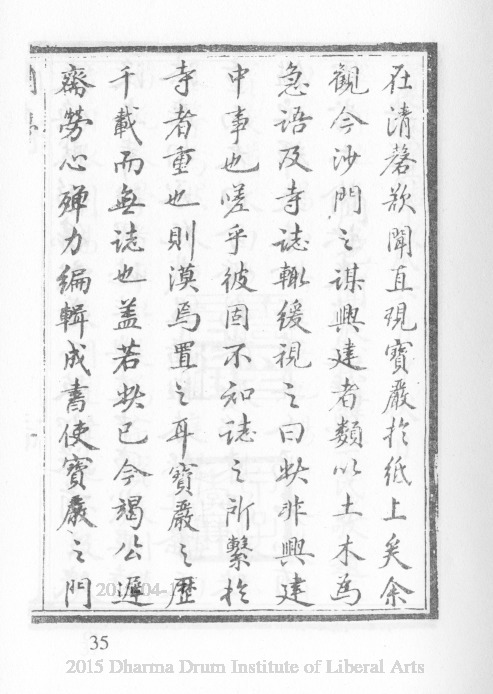 在清磬欬聞直現寶嚴於紙上矣余
觀今沙門之謀興建者類以土木為
急語及寺誌輙緩視之曰此非興建
中事也嗟乎彼固不知誌之所繫於
寺者重也則漠焉置之耳寶嚴之歷
千載而無誌也盖若此已今謁公遯
齋勞心殫力編輯成書使寶嚴之門
35
2015 Dharma Drum Institute of Liberal Arts